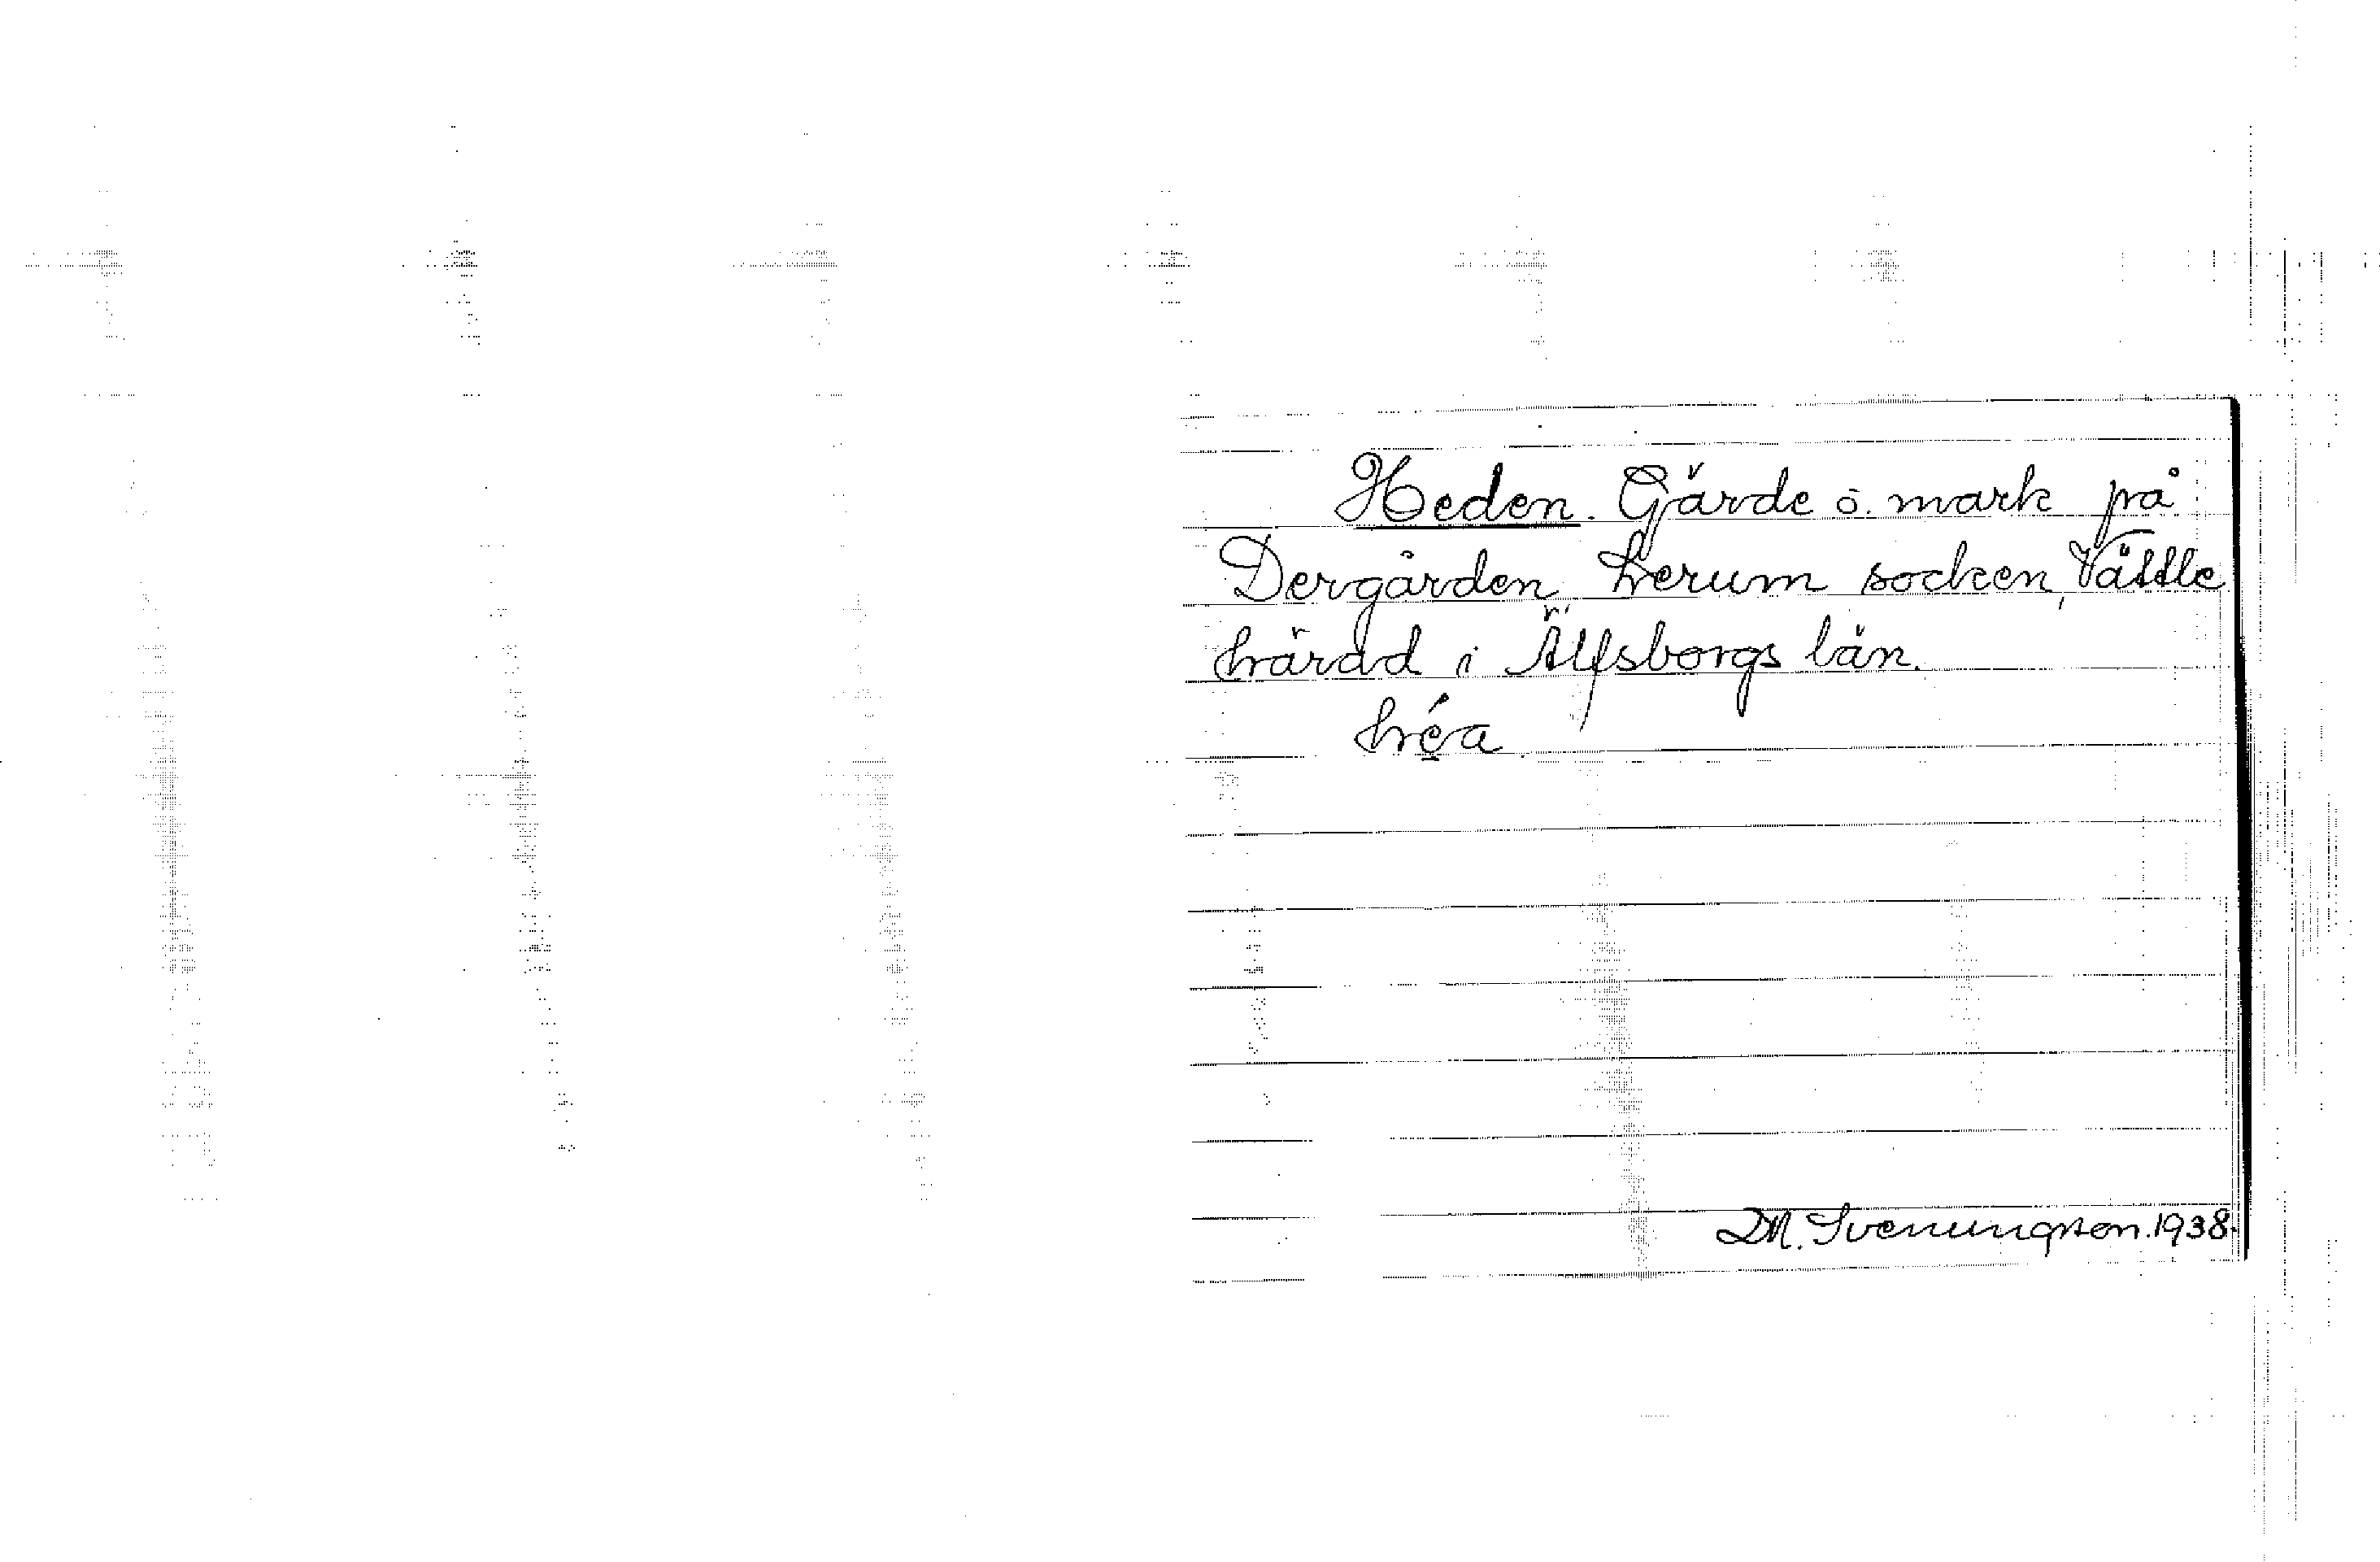 Heden. Gärde o. mark på
Dergården, Lerum socken, Vättle
härad i Älfsborgs län.
héa
D.M. Svenungson. 1938.